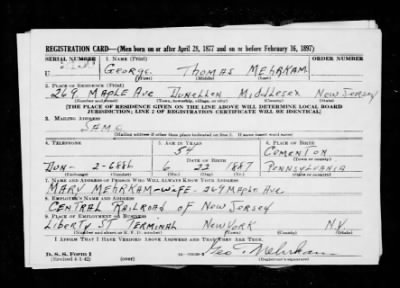 REGISTRATION CARD—(Men born on or after April 28, 1877 and on or before February 16, 1897)
SERIAL NUMBER 1. NAME (Print) ORDER NUMBER
U George Thomas Mehrkam
(First) (Middle) (Last)
2. PLACE OF RESIDENCE (Print)
269 Maple Ave Dunellen Middlesex New Jersey
(Number and street) (Town, township, village, or city) (County) (State)
[THE PLACE OF RESIDENCE GIVEN ON THE LINE ABOVE WILL DETERMINE LOCAL BOARD
JURISDICTION; LINE 2 OF REGISTRATION CERTIFICATE WILL BE IDENTICAL]
3. MAILING ADDRESS
Same
[Mailing address if other than place indicated on line 2. If same insert word same]
4. TELEPHONE 5. AGE IN YEARS 6. PLACE OF BIRTH
54 Cementon
DATE OF BIRTH (Town or county)
Dun- 2-6886 6 22 1887 Pennsylvania
(Exchange) (Number) (Mo.) (Day) (Yr.) (State or country)
7. NAME AND ADDRESS OF PERSON WHO WILL ALWAYS KNOW YOUR ADDRESS
Mary Mehrkam-wife- 269 Maple Ave
8. EMPLOYER'S NAME AND ADDRESS
Central Railroad of New Jersey
9. PLACE OF EMPLOYMENT OR BUSINESS
Liberty St Terminal New York N.Y.
(Number and street or R. F. D. number) (Town) (County) (State)
I AFFIRM THAT I HAVE VERIFIED ABOVE ANSWERS AND THAT THEY ARE TRUE.
D. S. S. Form 1 Geo T. Mehrkam
(Revised 4-1-42) (over) (Registrant's signature)